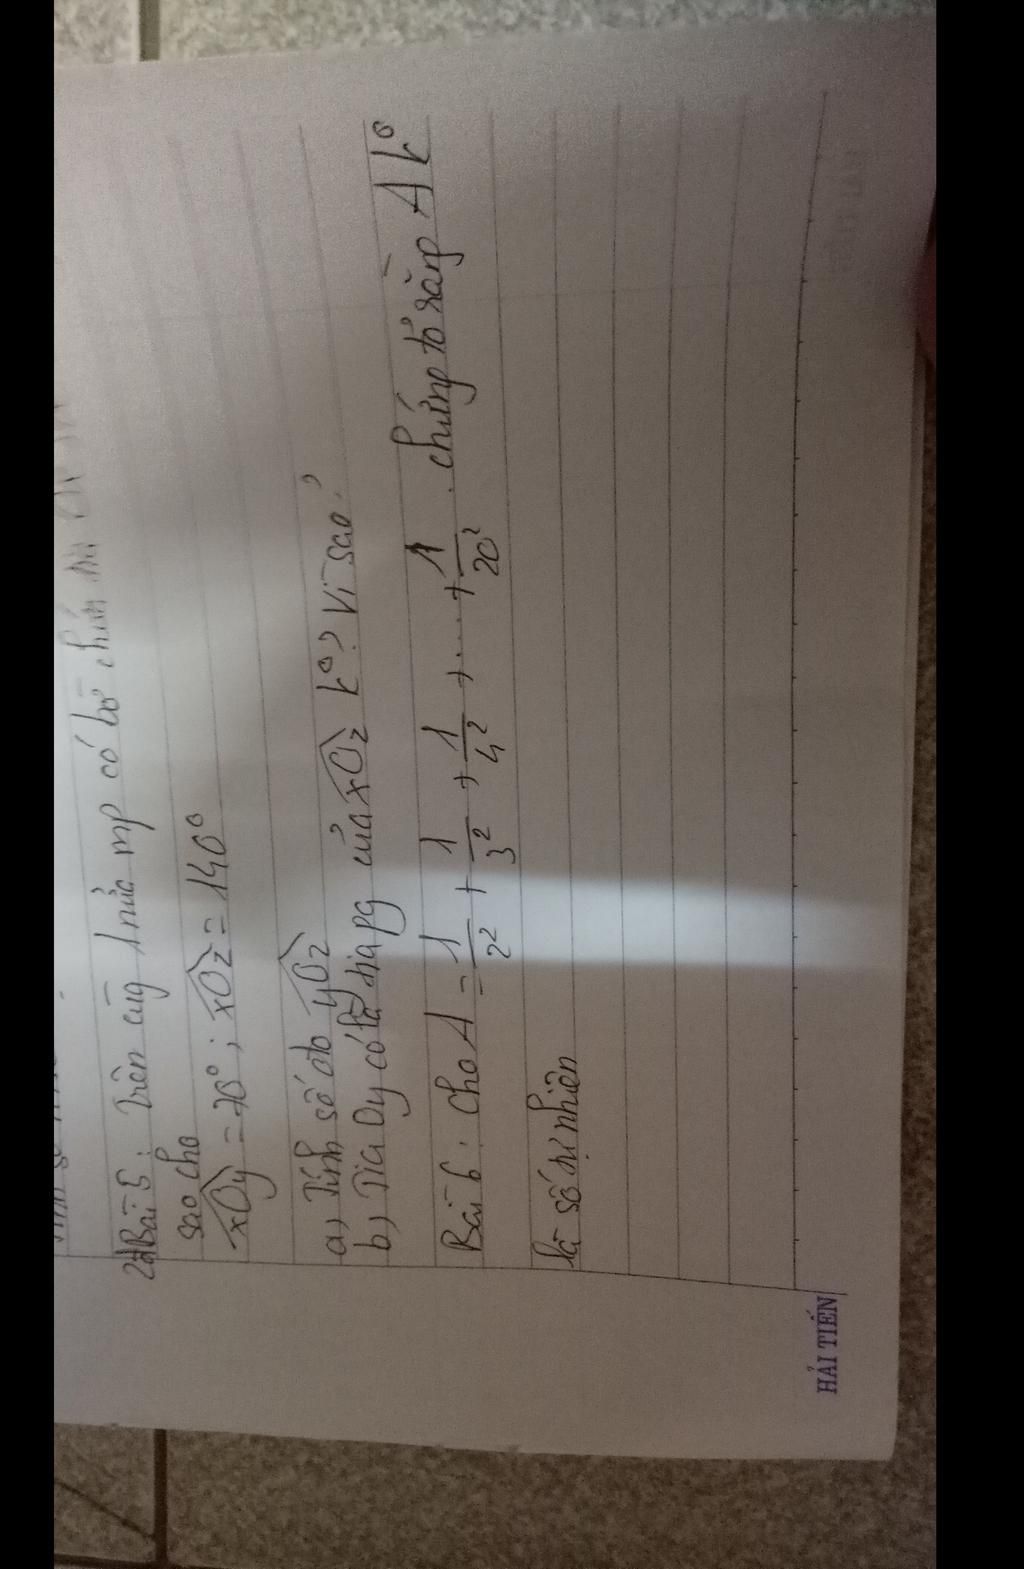 Bài 5: Trên cùg 1 nửa mp có bờ chứa tia
sao cho
xOy = 70°; xOz = 140°
a, Tính số đo yOz
b, Tia Oy có là tia pg của xOz k°? Vì sao?
Bài 6: Cho A = 1/2² + 1/3² + 1/4² + .... + 1/20². Chứng tỏ rằng A k°
là số tự nhiên
HẢI TIẾN